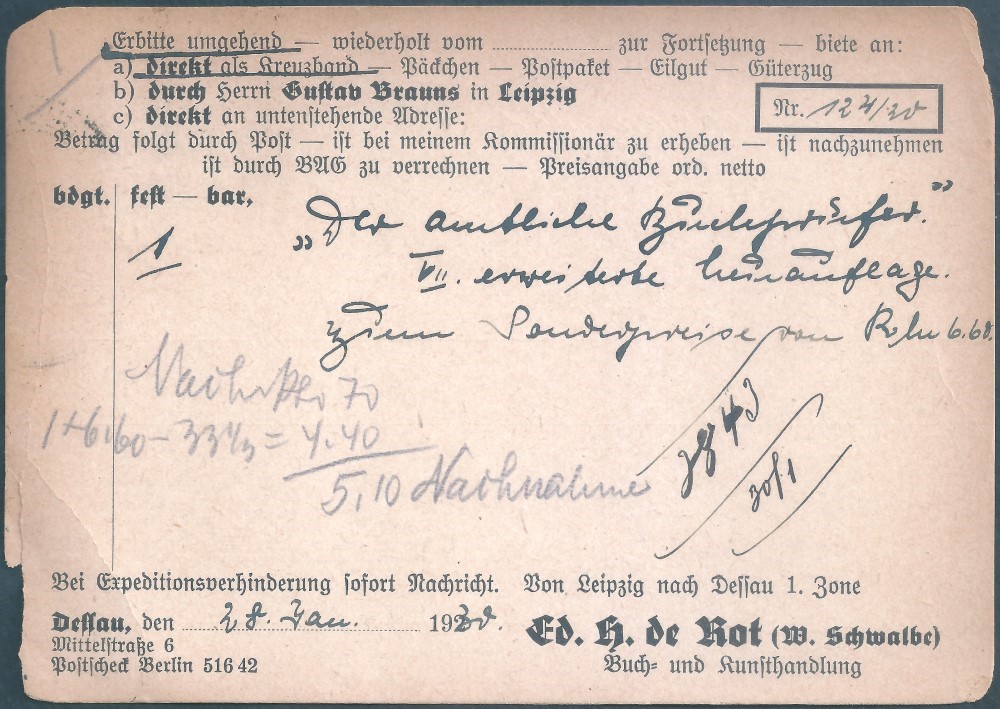 Erbitte umgehend — wiederholt vom ........ zur Fortsetzung — biete an:
a) direkt als Kreuzband — Päckchen — Postpaket — Eilgut — Güterzug
b) durch Herrn Gustav Brauns in Leipzig
c) direkt an untenstehende Adresse:
Nr. 124/30
Betrag folgt durch Post — ist bei meinem Kommissionär zu erheben — ist nachzunehmen
ist durch BAG zu verrechnen — Preisangabe ord. netto
bdgt. fest — bar,
1 „Der amtliche Bücherprüfer."
VII. erweiterte Neuauflage.
zum Sonderpreise von Rm 6.60.
Nachn Pto 70
1 + 6,60 - 33 1/3 = 4.40
5,10 Nachnahme
30/1
Bei Expeditionsverhinderung sofort Nachricht. Von Leipzig nach Dessau 1. Zone
Dessau, den 28. Jan. 1930.
Mittelstraße 6
Postscheck Berlin 516 42
Ed. H. de Rot (W. Schwalbe)
Buch- und Kunsthandlung